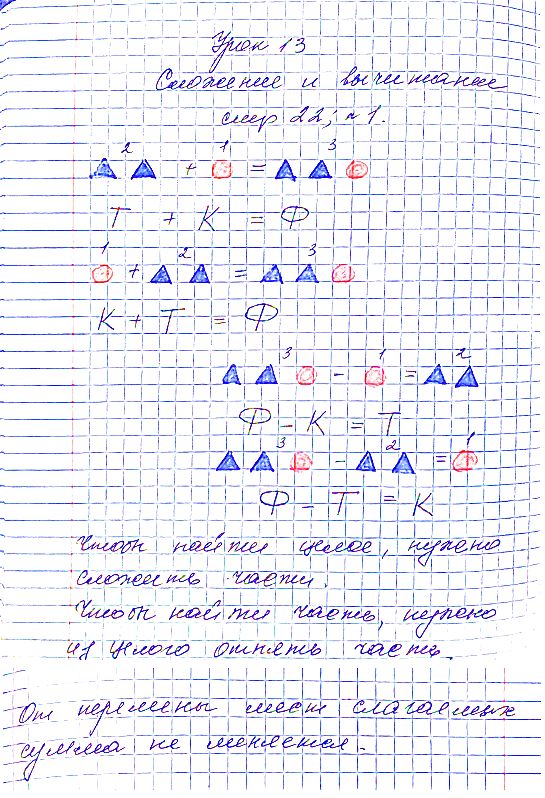 Урок 13
Сложение и вычитание
стр 22; №1.
2 + 1 = 3
Т + К = Ф
1 + 2 = 3
К + Т = Ф
3 - 1 = 2
Ф - К = Т
3 - 2 = 1
Ф - Т = К
Чтобы найти целое, нужно
сложить части.
Чтобы найти часть, нужно
из целого отнять часть.
От перемены мест слагаемых
сумма не меняется.